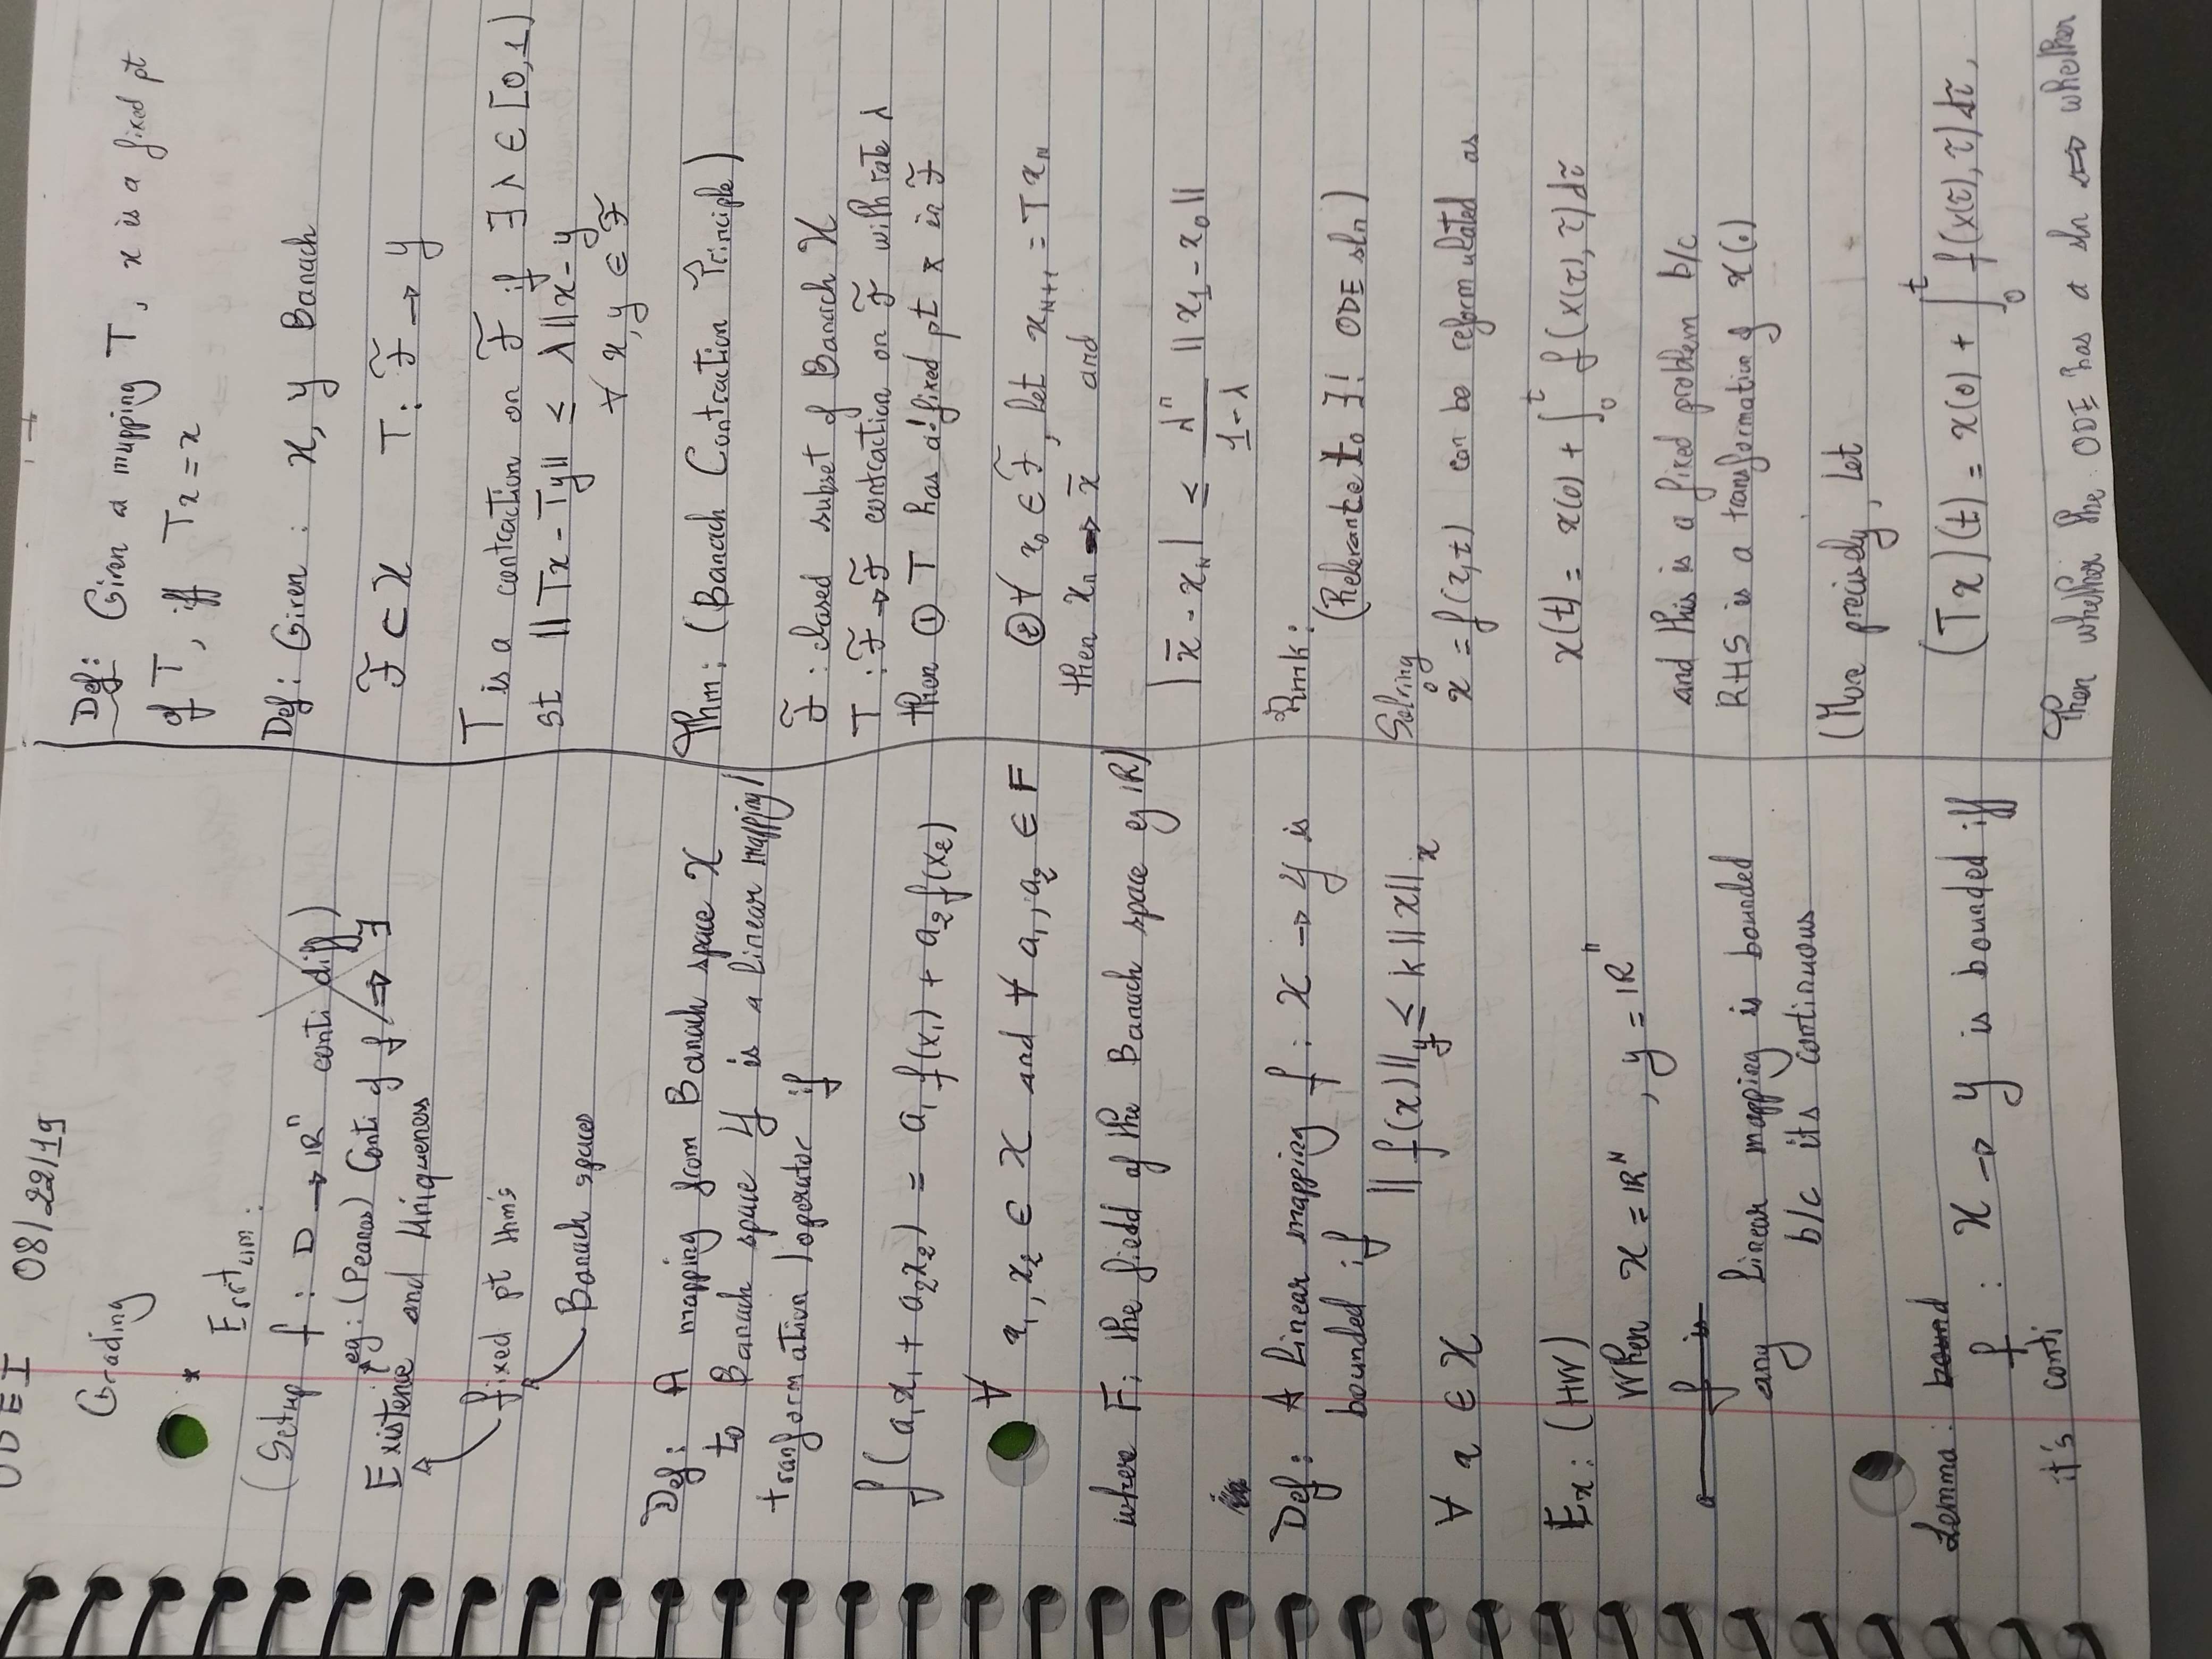 ODE I 08/22/19
Grading
*
Erratum:
(Setup f : D → ℝⁿ conti diff)
eg: (Peanos) Conti of f ⇒ ∃
Existence and Uniqueness
fixed pt thm's
Banach spaces
Def: A mapping from Banach space X
to Banach space Y is a linear mapping/
tranformation/operator if
f(a₁x₁ + a₂x₂) = a₁f(x₁) + a₂f(x₂)
∀ x₁, x₂ ∈ X and ∀ a₁, a₂ ∈ F
where F: the field of the Banach space eg ℝ)
Def: A linear mapping f : X → Y is
bounded if
‖f(x)‖_Y ≤ k‖x‖_X
∀ x ∈ X
Ex: (HW)
When X = ℝᴺ, Y = ℝⁿ
a f is
any linear mapping is bounded
b/c its continuous
Lemma: bound
f : X → Y is bounded iff
it's conti
Def: Given a mapping T, x is a fixed pt
of T, iff Tx = x
Def: Given : X, Y Banach
F̃ ⊂ X T: F̃ → Y
T is a contraction on F̃ if ∃ λ ∈ [0,1)
st ‖Tx - Ty‖ ≤ λ‖x - y
∀ x, y ∈ F̃
Thm: (Banach Contraction Principle)
F̃ : closed subset of Banach X
T : F̃ → F̃ contraction on F̃ with rate λ
then ① T has a! fixed pt x in F̃
② ∀ x₀ ∈ F̃, let x_{N+1} = T x_N
then xₙ → x̄ and
|x̄ - x_N| ≤ λⁿ/(1-λ) ‖x₁ - x₀‖
Rmk:
(Relevante to ∃! ODE sln)
Solving
ẋ = f(x,t) can be reformulated as
x(t) = x(0) + ∫₀ᵗ f(x(τ), τ) dτ
and this is a fixed problem b/c
RHS is a transformation of x(.)
(More precisely, let
(Tx)(t) = x(0) + ∫₀ᵗ f(x(τ), τ) dτ,
Then whether the ODE has a sln ⇔ whether